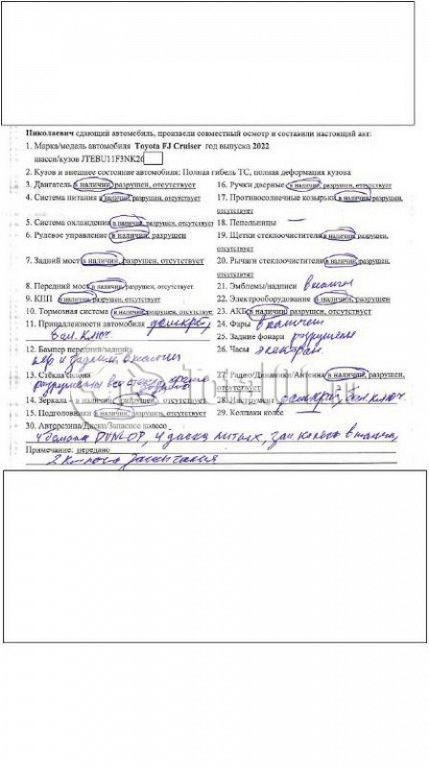 Николаевич сдающий автомобиль, произвели совместный осмотр и составили настоящий акт:
1. Марка/модель автомобиля Toyota FJ Cruiser год выпуска 2022
шасси/кузов JTEBU11F3NK20
2. Кузов и внешнее состояние автомобиля: Полная гибель ТС, полная деформация кузова
3. Двигатель в наличии, разрушен, отсутствует
16. Ручки дверные в наличии, разрушен, отсутствует
4. Система питания в наличии, разрушен, отсутствует
17. Противосолнечные козырьки в наличии, разрушен, отсутствует
5. Система охлаждения в наличии, разрушен, отсутствует
18. Пепельницы —
6. Рулевое управление в наличии, разрушен
19. Щетки стеклоочистителя в наличии, разрушен, отсутствует
7. Задний мост в наличии, разрушен, отсутствует
20. Рычаги стеклоочистителя в наличии, разрушен, отсутствует
8. Передний мост в наличии, разрушен, отсутствует
21. Эмблемы/надписи в наличии
9. КПП в наличии, разрушен, отсутствует
22. Электрооборудование в наличии, разрушен
10. Тормозная система в наличии, разрушен, отсутствует
23. АКБ в наличии, разрушен, отсутствует
11. Принадлежности автомобиля домкрат,
бал. ключ
24. Фары в наличии
25. Задние фонари разрушены
12. Бампер передний/задний
пер и задний, в наличии
26. Часы
13. Стёкла салона
разрушены все стекла, кроме
27. Радио/Динамики/Антенна в наличии, разрушен, отсутствует
14. Зеркала - в наличии, разрушен, отсутствует
28. Инструмент домкрат, бал ключ
15. Подголовники в наличии, разрушен, отсутствует
29. Колпаки колёс —
30. Авторезина/Диски/Запасное колесо
4 баллона DUNLOP, 4 диска литых, зап колесо в наличии,
Примечание: передано
2 ключа зажигания